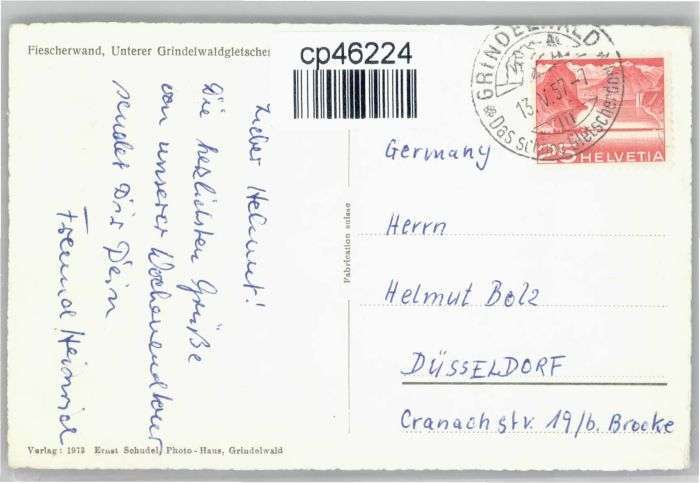 Fiescherwand, Unterer Grindelwaldgletscher
cp46224
Lieber Helmut!
Die herzlichsten Grüße
von unserer Wochenendtour
sendet Dir Dein
Freund Heinrich
Verlag: 1973 Ernst Schudel, Photo-Haus, Grindelwald
Fabrication suisse
GRINDELWALD
13.V.57-7
Das schöne Gletscherdorf
25 HELVETIA
Germany
Herrn
Helmut Bolz
DÜSSELDORF
Cranachstr. 19/b. Brocke